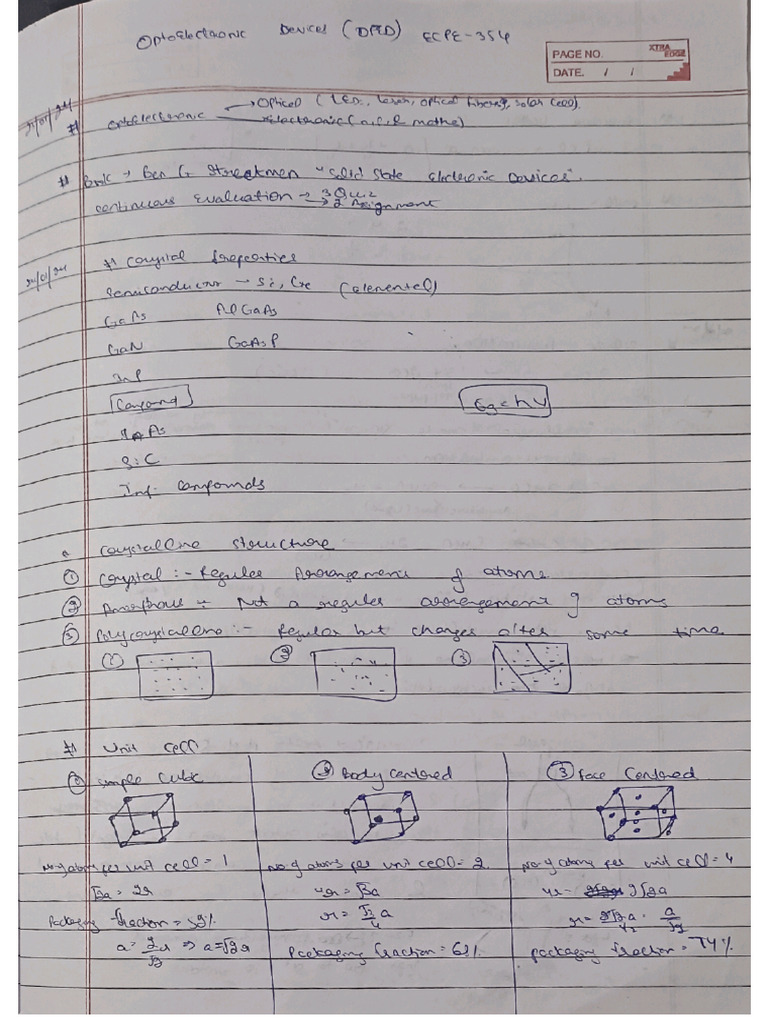 OptoElectronic Devices (OPTD) ECPE-354
XTRA EDGE
PAGE NO.
DATE. / /
→ Optical (LED, Laser, optical fibers, solar cell),
# OptoElectronic
→ Electronic (
# Book → Ben G Streetmen "Solid State Electronic Devices".
continuous Evaluation → 3 Quiz
→ 2 Assignment
# Crystal Properties
Semiconductor → Si, Ge (elemental)
GaAs AlGaAs
GaN GaAsP
InP
Compound Eg = hν
InAs
SiC
compounds
Crystalline structure
① Crystal :- Regular Arrangement of atoms
② Amorphous :- Not a regular arrangement of atoms
③ Polycrystalline :- Regular but changes after some time
① ② ③
# Unit cell
① Simple Cubic ② Body Centered ③ Face Centered
No of atoms per unit cell = 1 No of atoms per unit cell = 2 No of atoms per unit cell = 4
4r = √3a
r = √3/4 a
Packaging fraction = 52%
Packaging fraction = 68% packaging fraction = 74%